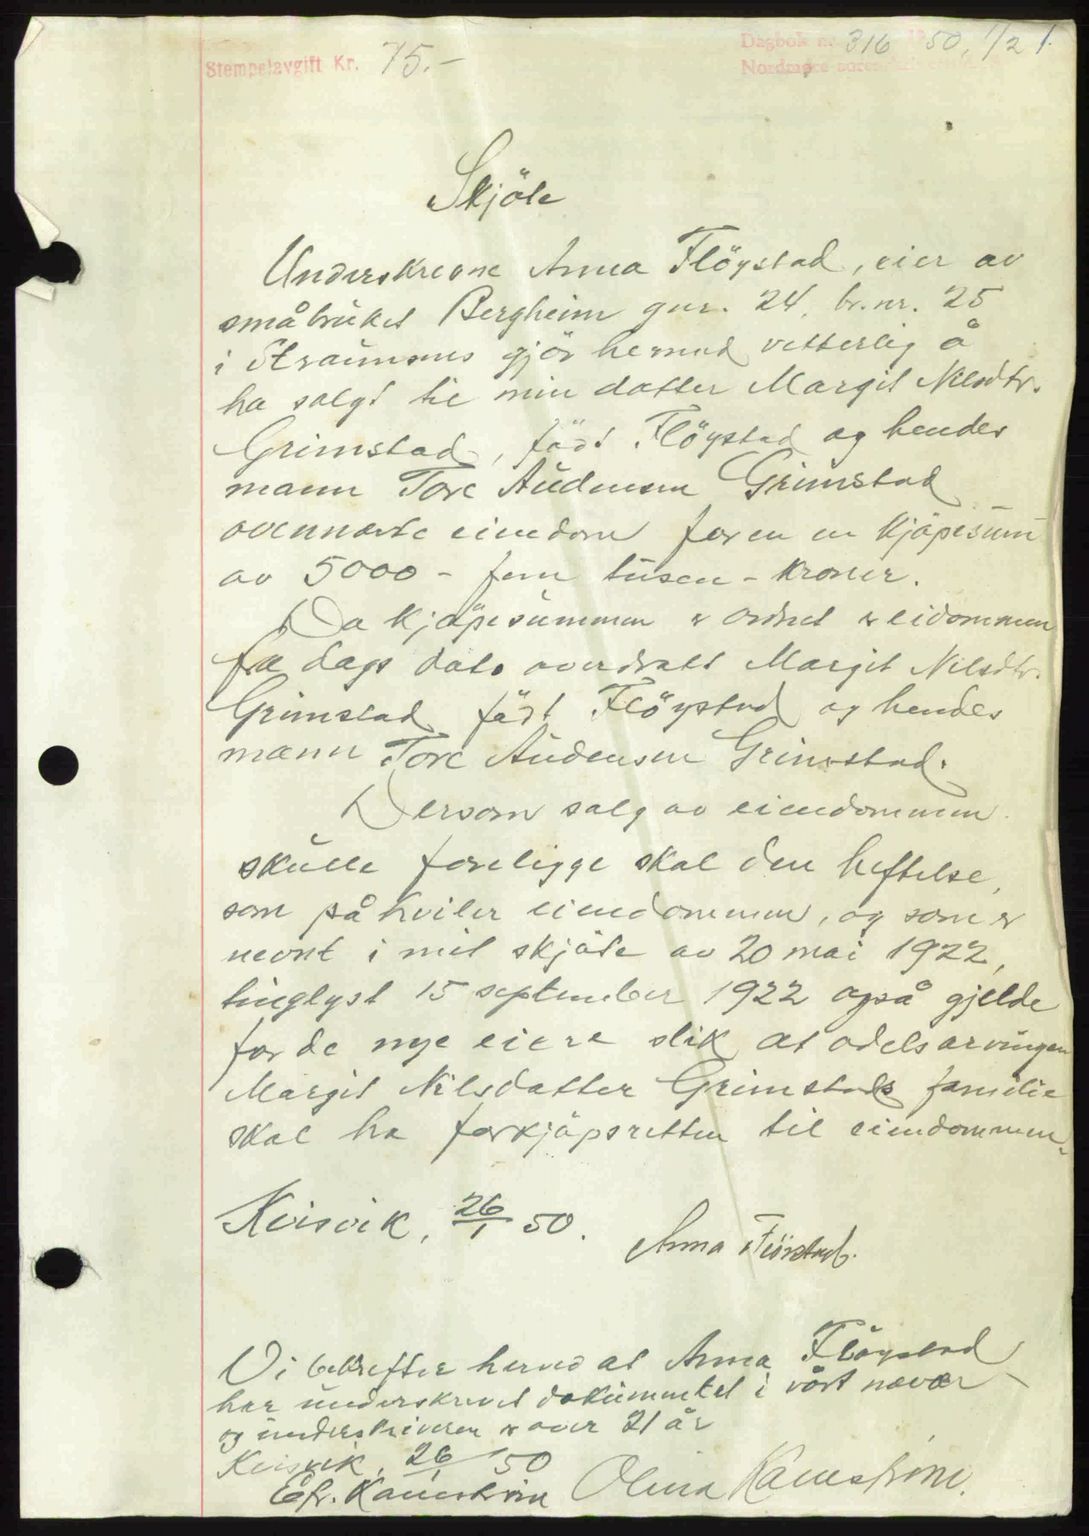 Stempelavgift Kr. 75.-
Dagbok nr. 316 1950, 1/2
Nordmøre sorenskriverembete
Skjöte
Underskrevne Anna Flöystad, eier av
småbruket Bergheim gnr. 24, br.nr. 25
i Straumsnes gjör hermed vetterlig å
ha solgt til min datter Margit Nilsdtr.
Grimstad, född Flöystad og hendes
mann Tore Audensen Grimstad
ovennevte eiendom for en en kjöpesum
av 5000 - fem tusen - kroner.
Da kjöpesummen er ordnet er eidommen
fra dags dato overdratt Margit Nilsdtr.
Grimstad född Flöystad og hendes
mann Tore Audensen Grimstad.
Dersom salg av eiendommen
skulle foreligge skal den heftelse,
som på hviler eiendommen, og som er
nevnt i mit skjöte av 20 mai 1922,
tinglyst 15 september 1922 også gjelde
for de nye eiere slik at odelsarvingen
Margit Nilsdatter Grimstads familie
skal ha forkjöpsretten til eiendommen.
Kvisvik, 26/1 50.
Anna Flöistad.
Vi bekrefter herved at Anna Flöystad
har underskrevet dokumentet i vårt nevær
og underskriveren er over 21 år
Kvisvik, 26/1 50
Olina Kamstrøm.